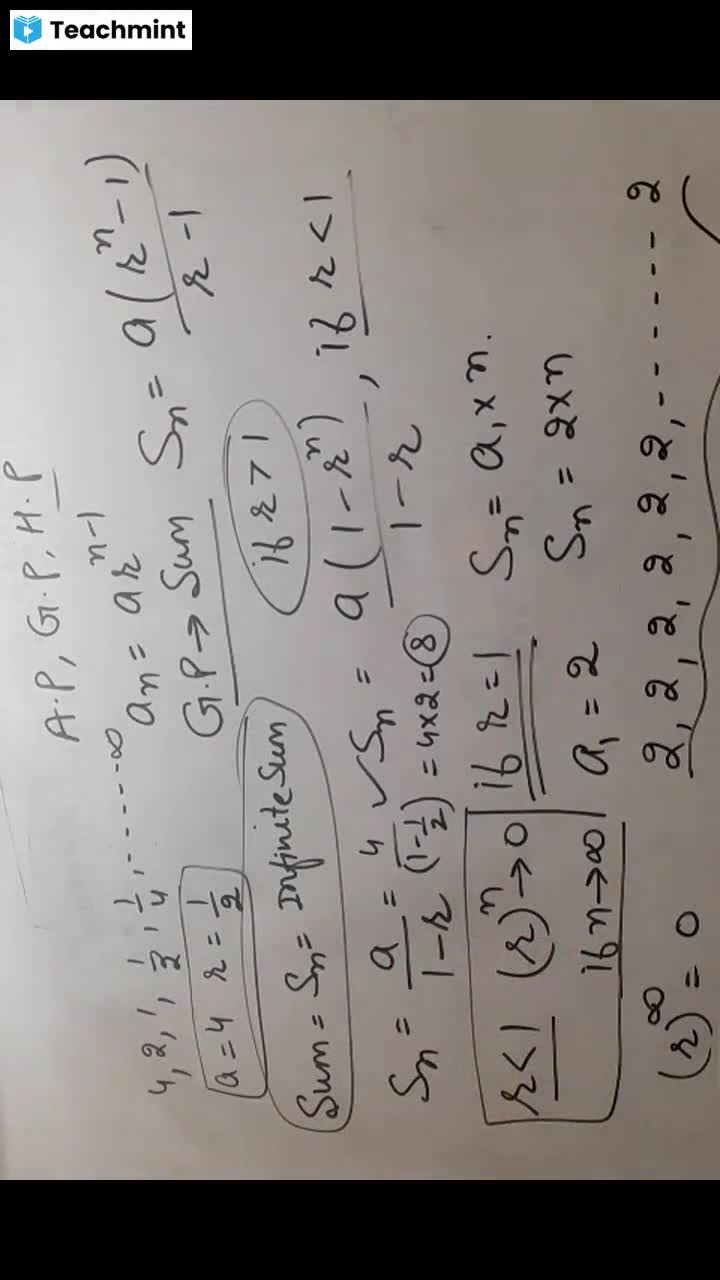 Teachmint
A.P, G.P, H.P
4, 2, 1, 1/2, 1/4, ------∞
aₙ = arⁿ⁻¹
a=4 r=1/2
G.P → Sum Sₙ = a(rⁿ-1)/r-1
if r>1
Sum = Sₙ = Infinite Sum
Sₙ = a/1-r = 4/(1-1/2) = 4×2=8
✓Sₙ = a(1-rⁿ)/1-r, if r<1
r<1 (r)ⁿ→0
if n→∞
if r=1 Sₙ = a₁×n.
a₁=2 Sₙ = 2×n
(r)^∞ = 0
2, 2, 2, 2, 2, 2, 2, ------- 2